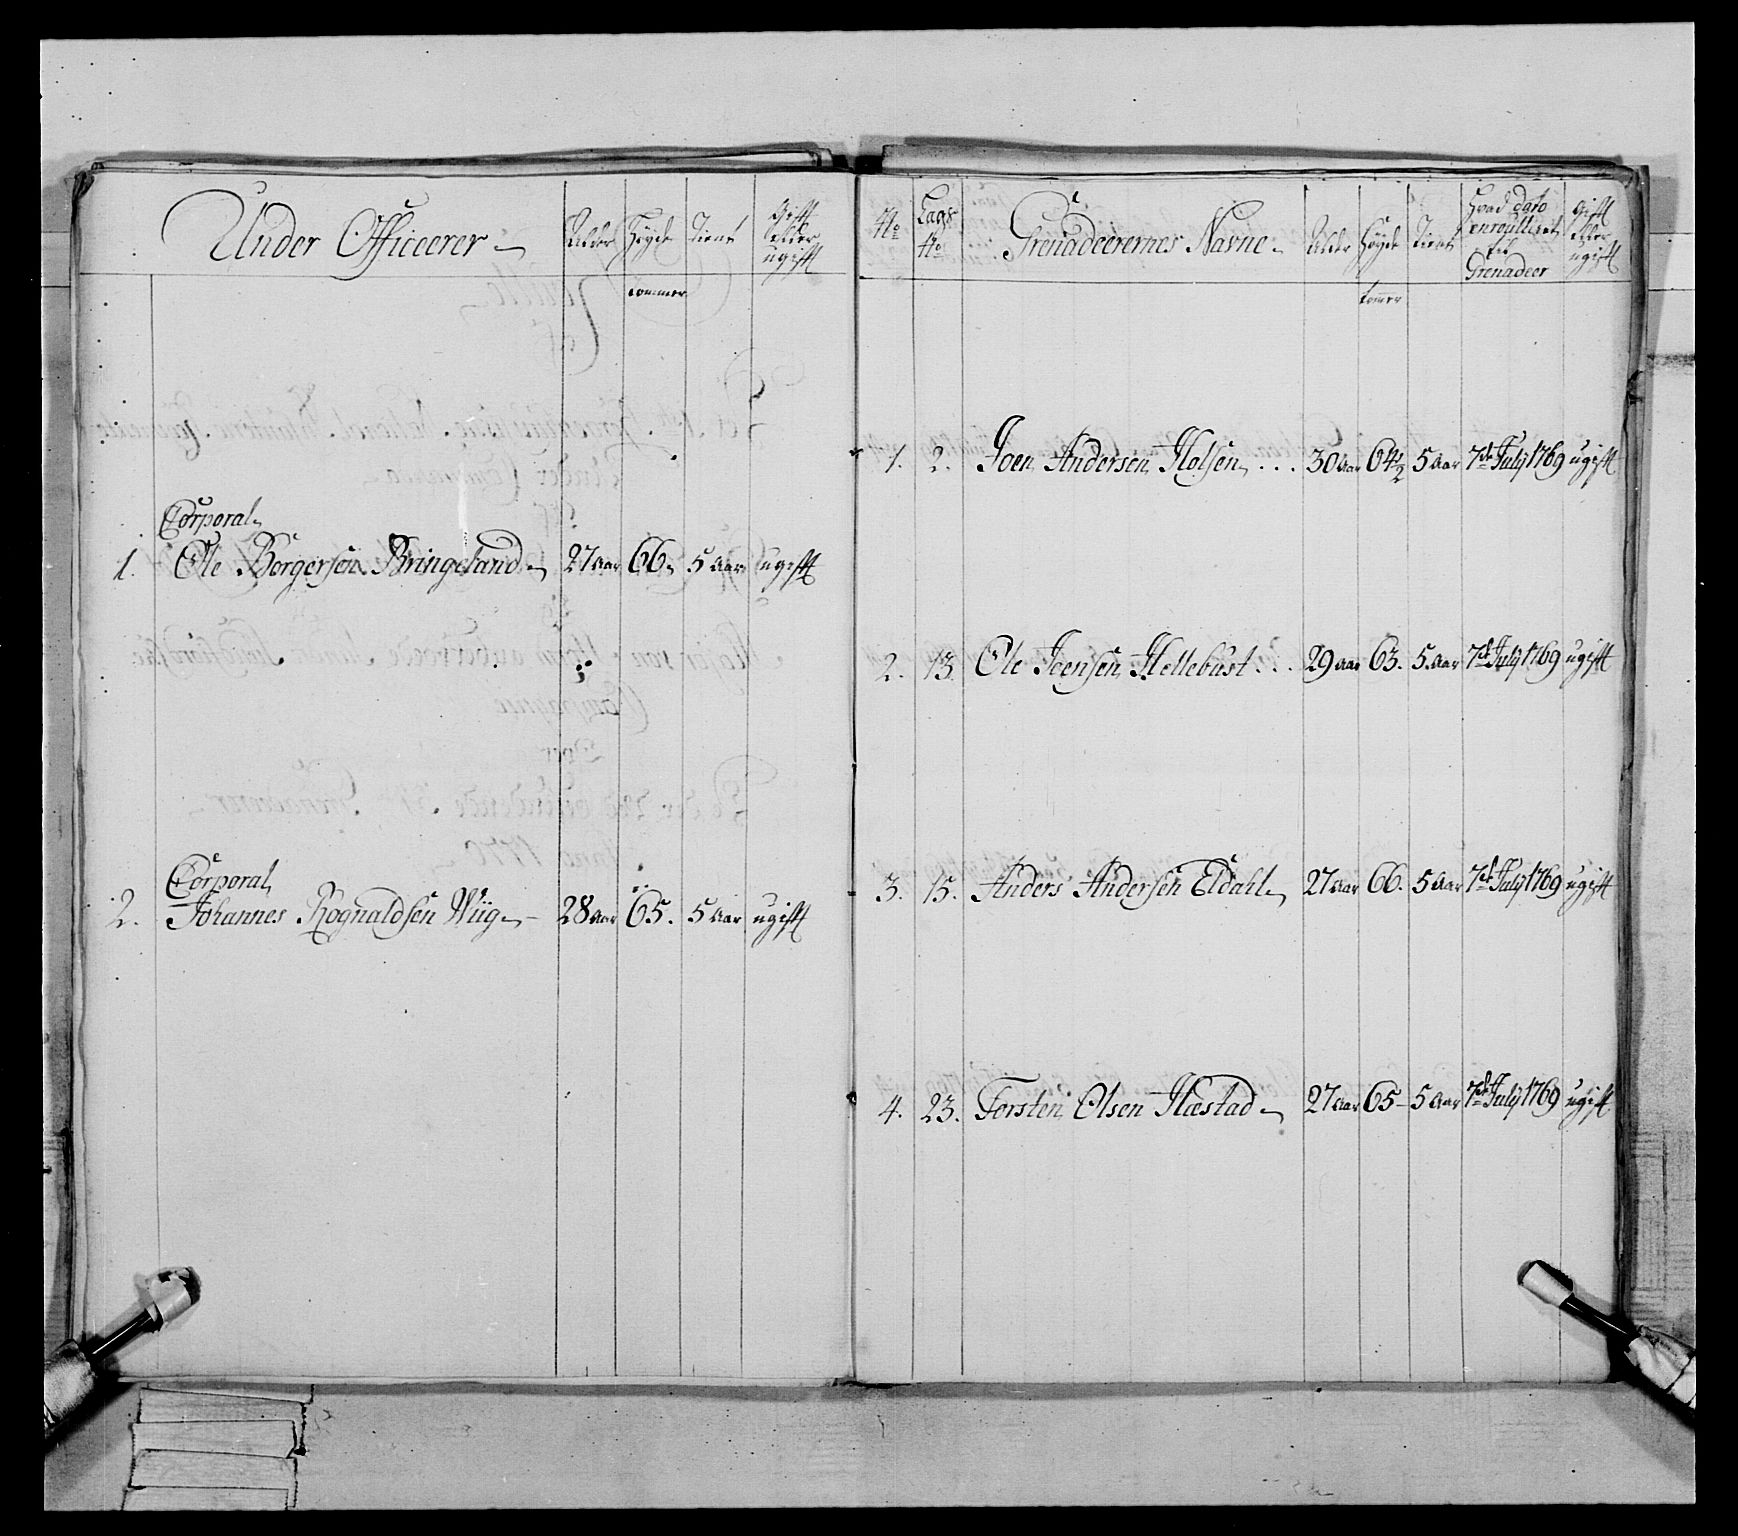 Under Officeerer
Alder Høyde Tient Gift eller ugift
tommer
Corporal
1. Ole Børgersen Bringeland 27 aar 66 5 aar ugift
Corporal
2. Johannes Rognaldsen Wiig 28 aar 65. 5 aar ugift
No Lægs No Grenadeerernes Navne Alder Høyde Tient Hvad dato enroulleret til Grenadeer Gift eller ugift
tommer
1. 2. Joen Andersen Holsen 30 aar 64½ 5 aar 7de July 1769 ugift
2. 13. Ole Joensen Hellebust 29 aar 63. 5 aar 7de July 1769 ugift
3. 15. Anders Andersen Eldahl 27 aar 66. 5 aar 7de July 1769 ugift
4. 23. Torsten Olsen Hæstad 27 aar 65 5 aar 7de July 1769 ugift